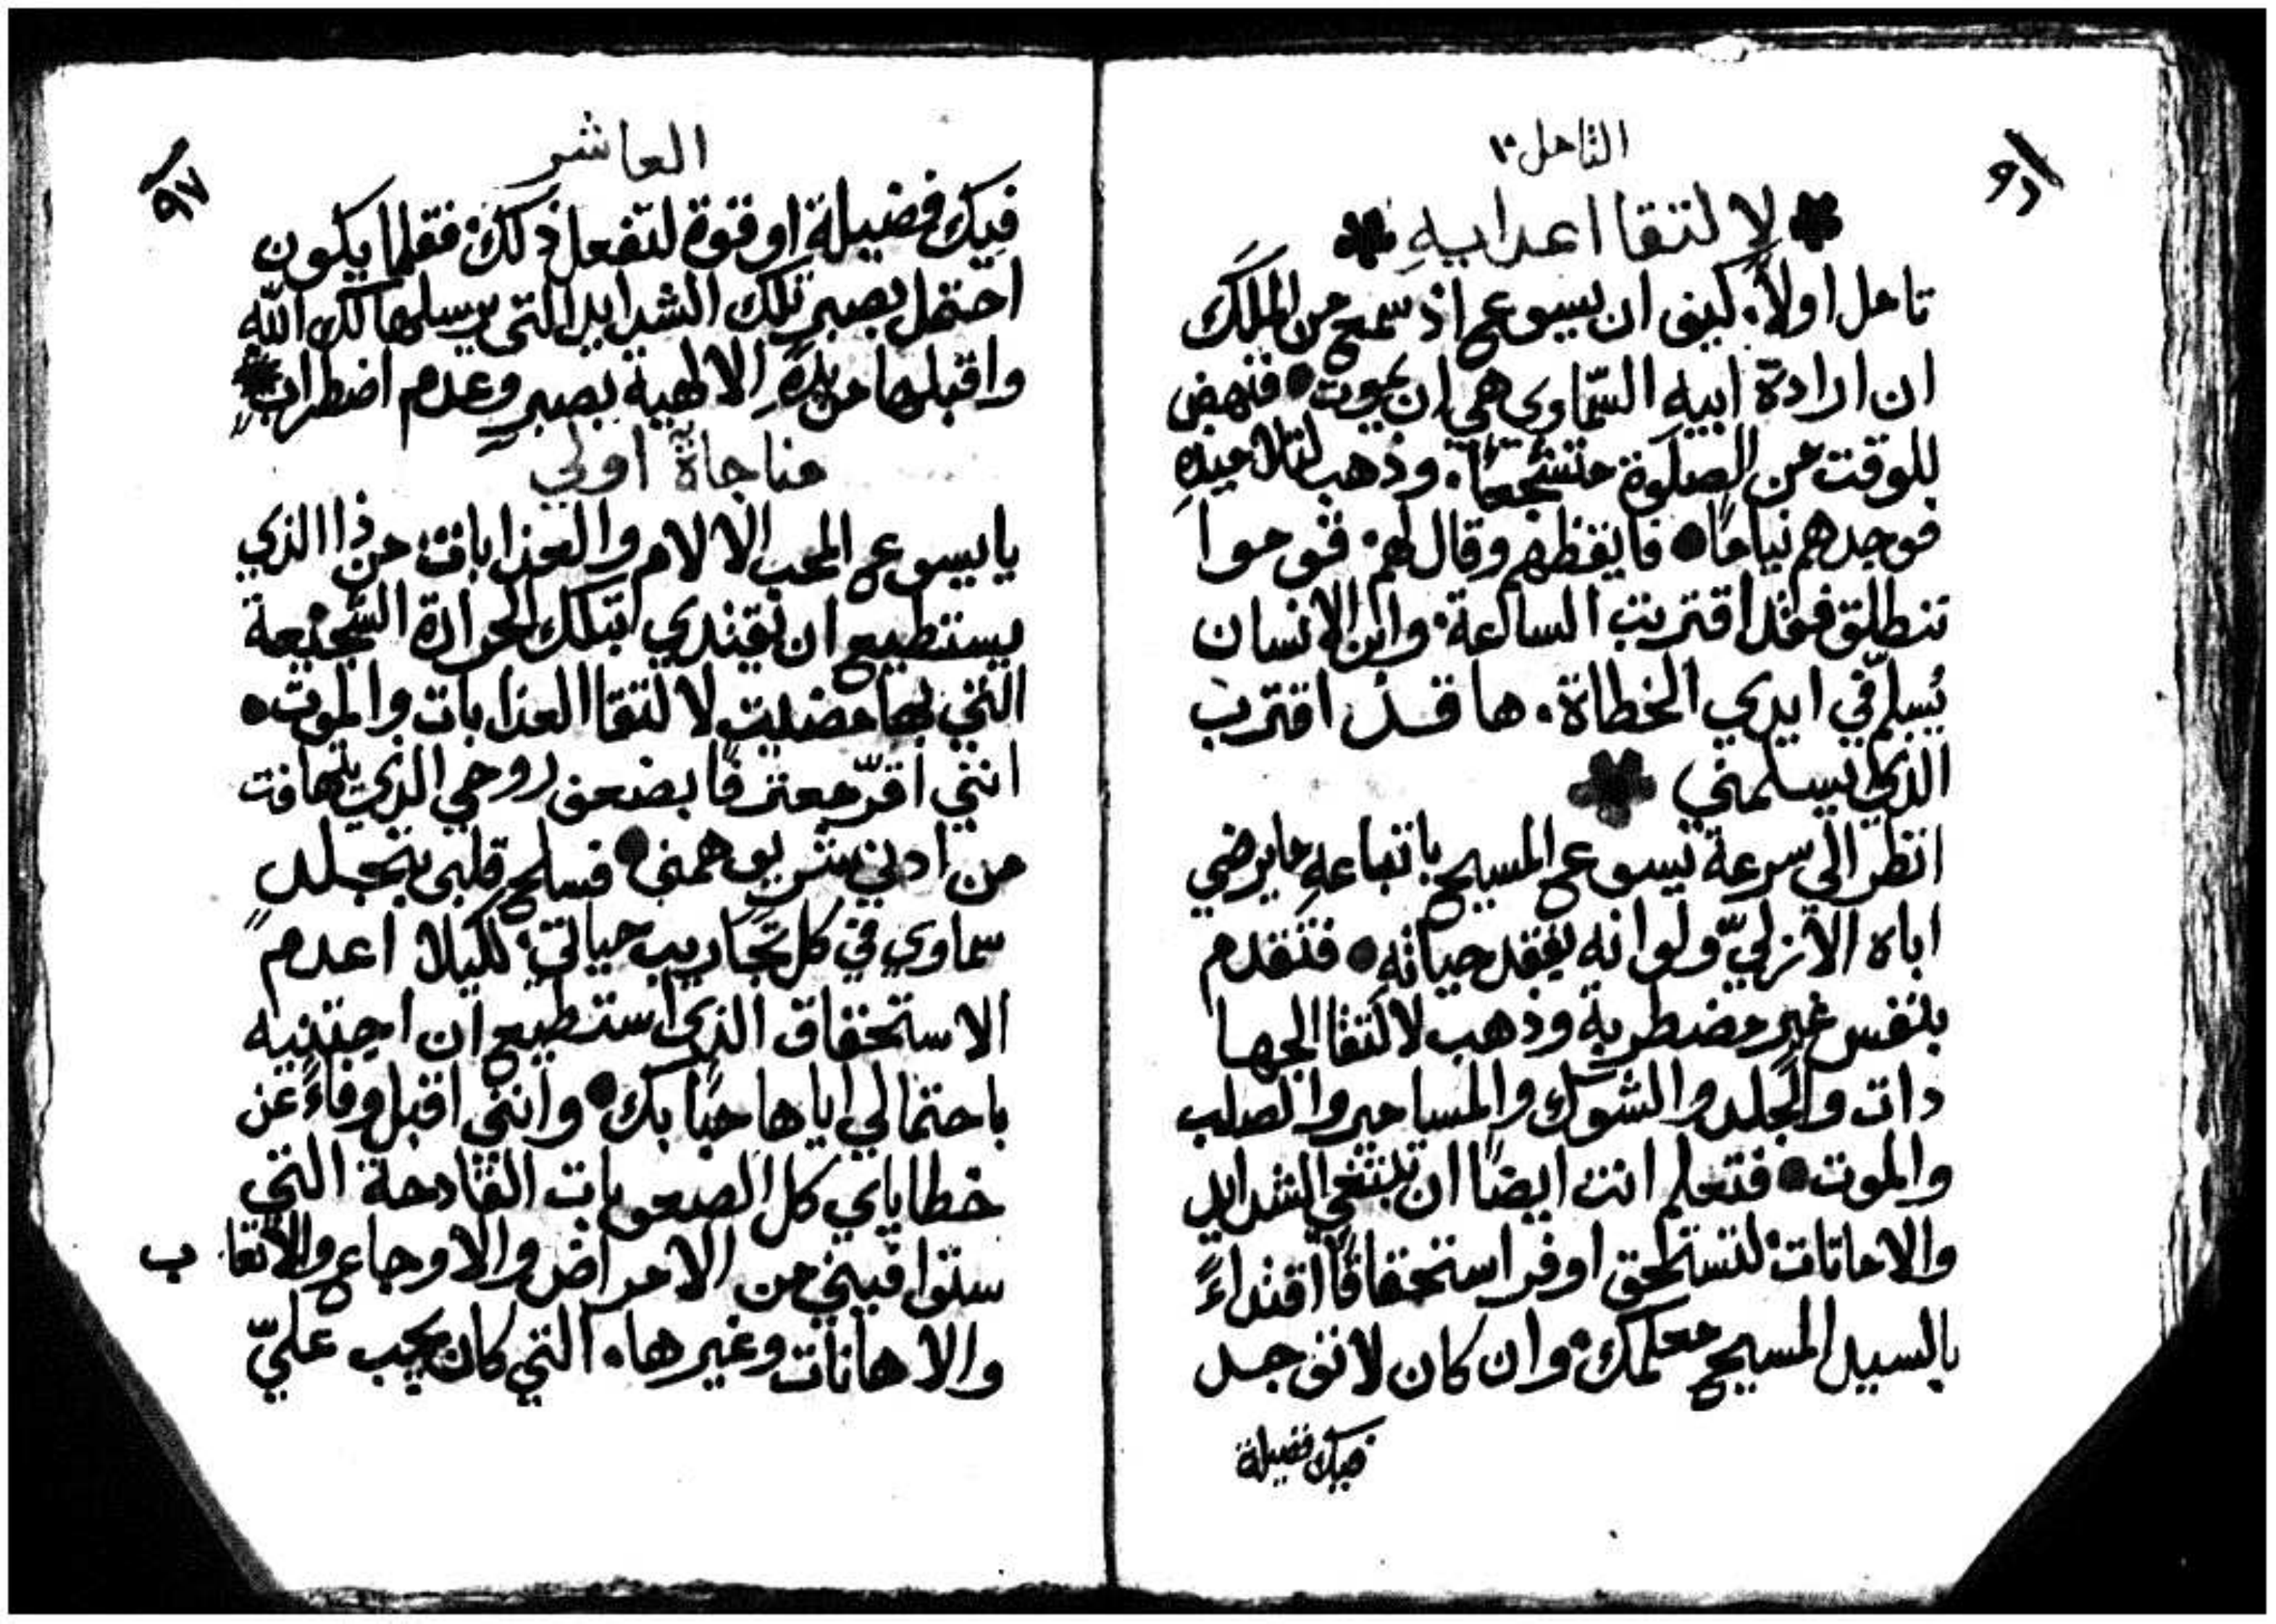 التامل ١٠
٩٦
لالتقا اعدايهِ
تامل اولاً. كيف ان يسوع اذ سمع من الملك
ان ارادة ابيه السّماوي هي ان يموت • فنهض
للوقت من الصلوة متشجعاً. وذهب لتلاميذهِ
فوجدهم نياماً • فايقظهم وقال لهم. قوموا
ننطلق فقد اقتربت الساعة. وابن الانسان
يُسلّم في ايدي الخطاة. ها قد اقترب
الذي يسلمني
انظر الى سرعة يسوع المسيح باتباعهِ ما يرضي
اباه الازليّ ولو انه يفقد حياته • فتقدم
بنفس غير مضطربة وذهب لالتقا الجها
دات والجلد والشوك والمسامير والصلب
والموت • فتعلم انت ايضاً ان تبتغي الشدايد
والاماتات. لتستحق اوفر استحقاقاً اقتداءً
بالسيد المسيح معلمك. وان كان لا توجد
فيك فضيلة
العاشر
٩٧
فيك فضيلة او قوة لتفعل ذلك. فقلما يكون
احتمل بصبرٍ تلك الشدايد التي يرسلها لك الله
واقبلها من يدهِ الالهية بصبرٍ وعدم اضطراب
مناجاة اولي
يا يسوع المحب الالام والعذابات. من ذا الذي
يستطيع ان يقتدي بتلك الحرارة الشجيعة
التي بها مضيت لالتقا العذابات والموت.
انني اقرّ معترفاً بضعف روحي الذي يتهافت
من ادني شي يوهمني • فسلح قلبي بتجلدٍ
سماوي في كل تجاريب حياتي. لكيلا اعدم
الاستحقاق الذي استطيع ان اجتنيه
باحتمالي اياها حباً بك • وانني اقبل وفاءً عن
خطاياي كل الصعوبات الفادحة التي
ستوافيني من الامراض والاوجاع والاتعاب
والاهانات وغيرها. التي كان يجب عليّ